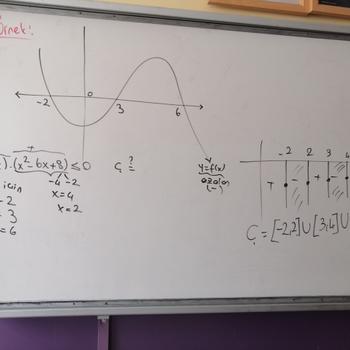 Örnek:
-2 0 3 6
+
). (x² - 6x + 8) ≤ 0 Ç ?=
-4 -2
için x = 4
-2 x = 2
= 3
= 6
y = f(x)
azalan
(-)
-2 2 3 4
+ - + -
Ç = [-2,2] ∪ [3,4] ∪